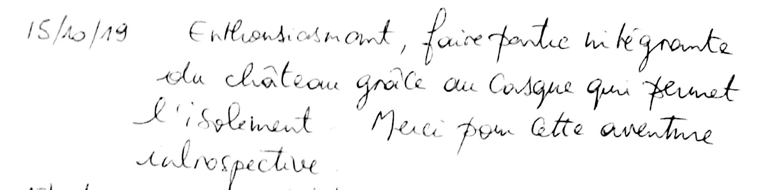 15/10/19 Enthousiasmant, faire partie intégrante
du château grâce au casque qui permet
l'isolement. Merci pour cette aventure
introspective